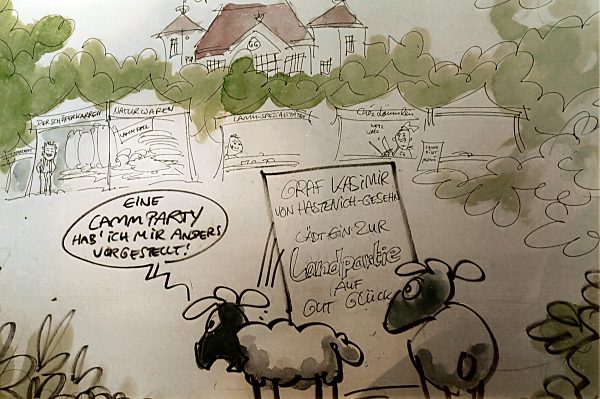 DER SCHÄFERKARREN
NATURWAREN
LAMMFELL
LAMMSPEZIALITÄTEN
EINE
LAMMPARTY
HAB' ICH MIR ANDERS
VORGESTELLT!
GRAF KASIMIR
VON HASTENICH-GESEHN
LÄDT EIN ZUR
Landpartie
AUF
GUT GLÜCK